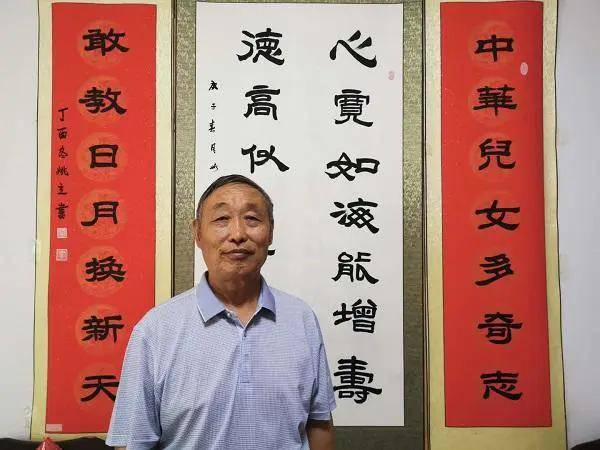 中華兒女多奇志
心寬如海能增壽
德高似
庚子春月
敢教日月換新天
丁酉